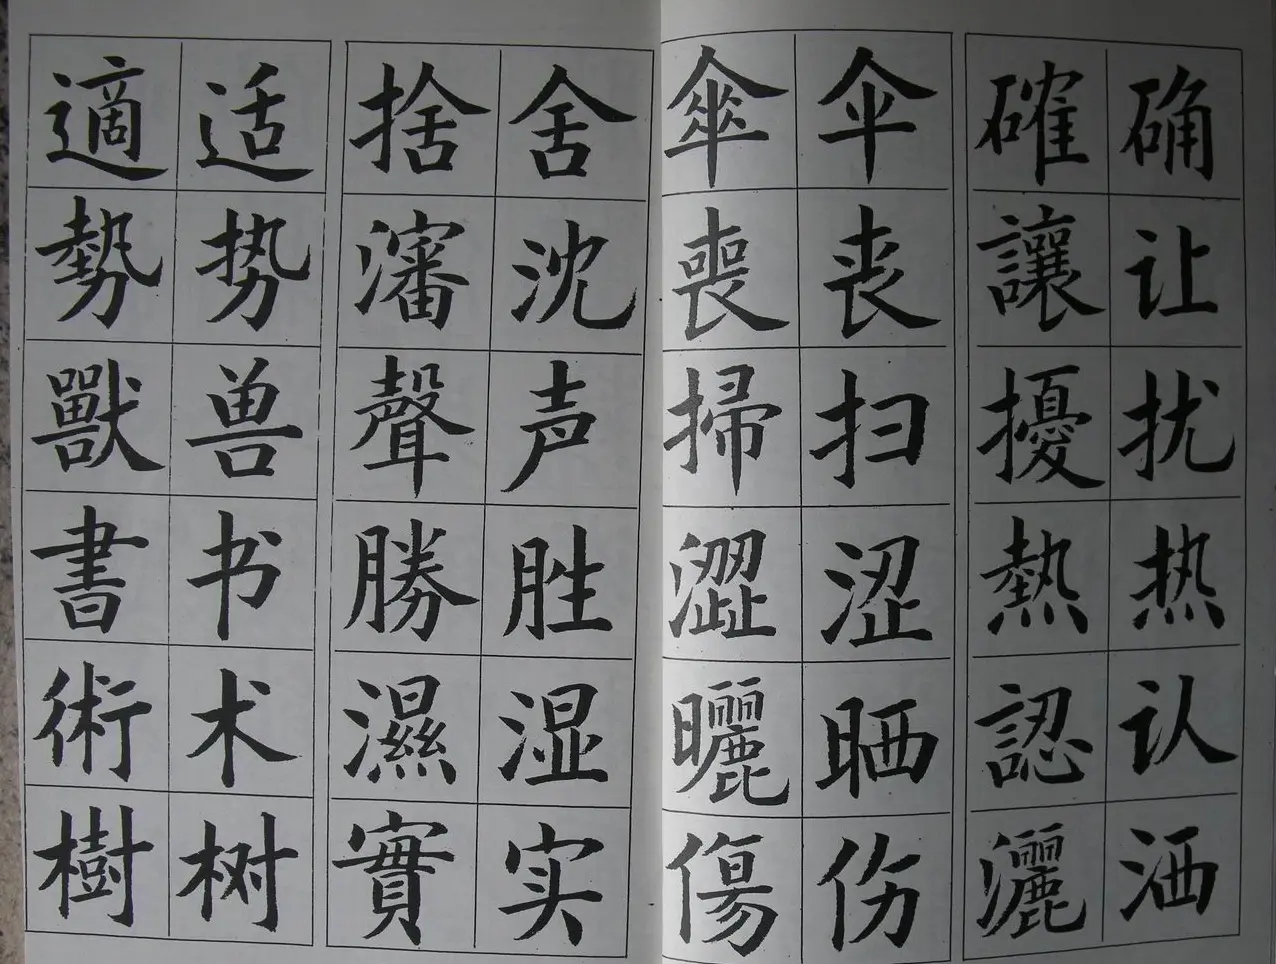 適 适 捨 舍 傘 伞 確 确
勢 势 瀋 沈 喪 丧 讓 让
獸 兽 聲 声 掃 扫 擾 扰
書 书 勝 胜 澀 涩 熱 热
術 术 濕 湿 曬 晒 認 认
樹 树 實 实 傷 伤 灑 洒